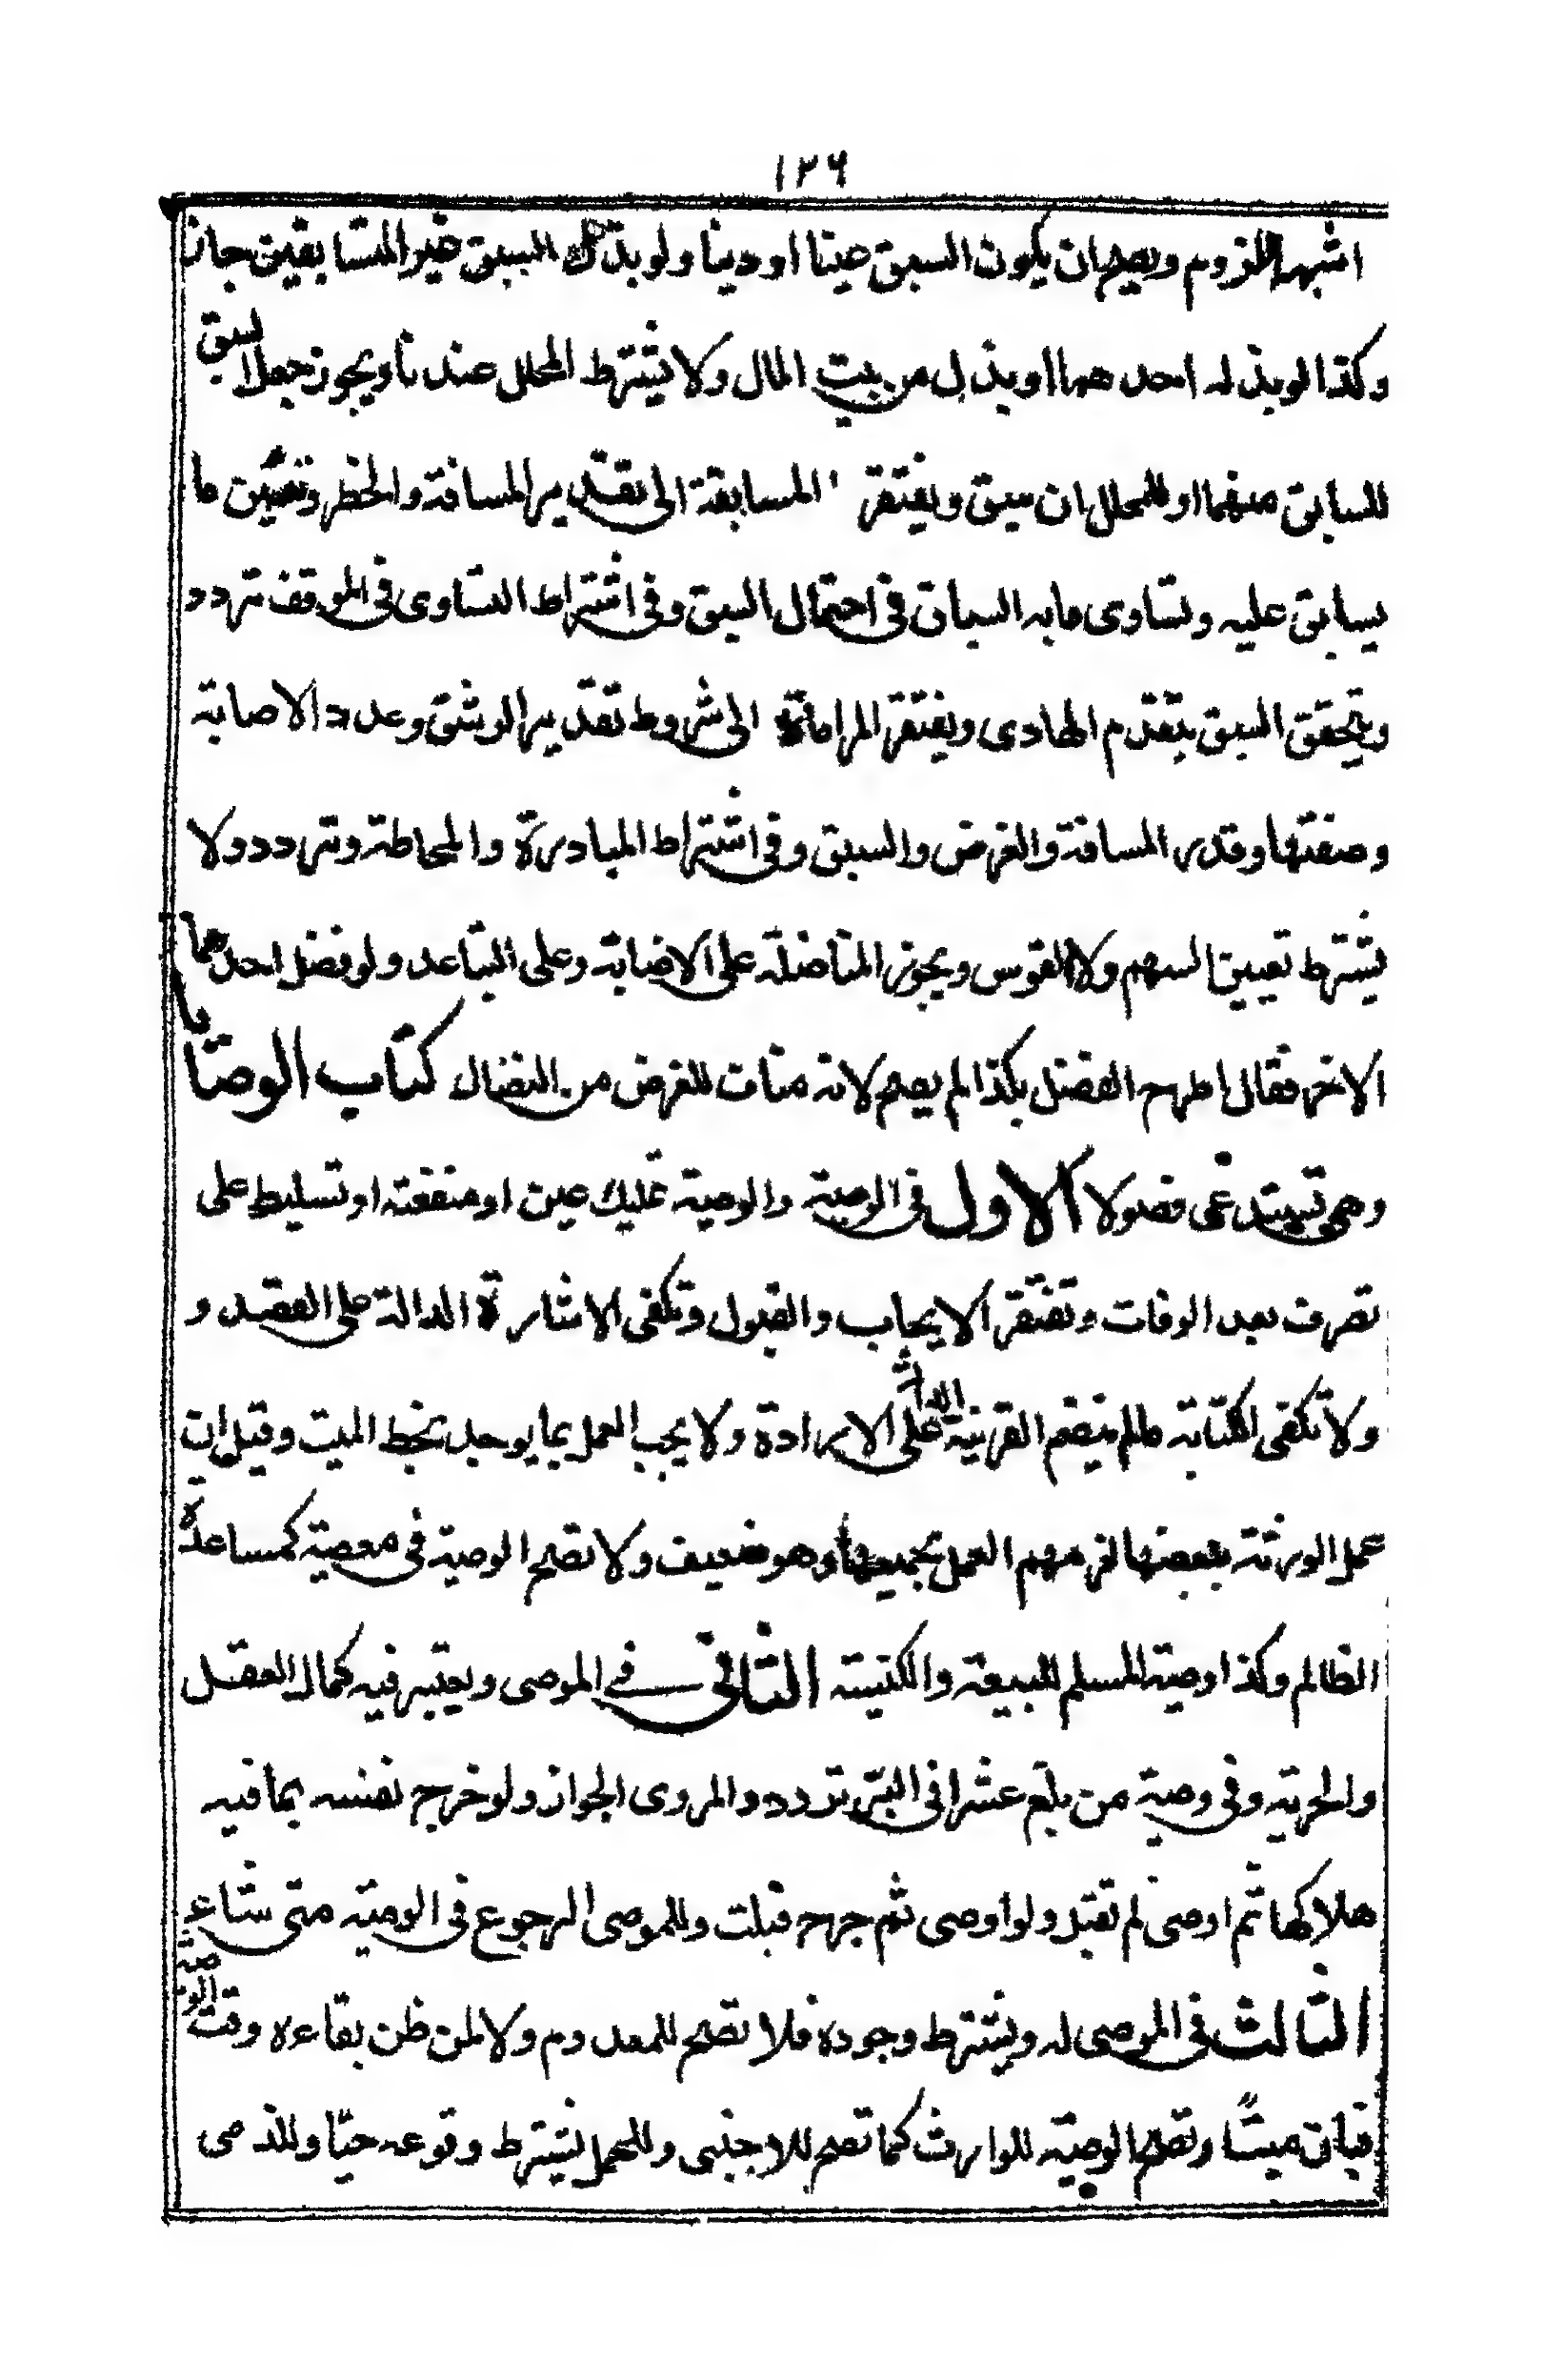 ١٢٦
اشبهه اللزوم ويصح ان يكون السبق عينا او دينا ولو بذل السبق غير المتسابقين جاز
وكذا لو بذله احدهما او بذل من بيت المال ولا يشترط المحلل عندنا ويجوز جعل السبق
للسابق منهما او للمحلل ان سبق ويفتقر المسابقة الى تقدير المسافة والخطر وتعيين ما
يسابق عليه وتساوى ما به السباق فى احتمال السبق وفى اشتراط التساوى فى الموقف تردد
ويتحقق السبق بتقدم الهادى ويفتقر المراماة الى شروط تقدير الرشق وعدد الاصابة
وصفتها وقدر المسافة والغرض والسبق وفى اشتراط المبادرة والمحاطة وتردد ولا
يشترط تعيين السهم ولا القوس ويجوز المناضلة على الاصابة وعلى التباعد ولو فضل احدهما
الاخر فقال اطرح الفضل بكذا لم يصح لانه مناف للغرض من النضال كتاب الوصايا
وهى تستدعى فصولا الاول فى الوصية والوصية تمليك عين او منفعته او تسليط على
تصرف بعد الوفات وتفتقر الايجاب والقبول وتكفى الاشارة الدالة على العقد و
ولا تكفى الكتابة مالم ينضم القرينة الدالة على الارادة ولا يجب العمل بما يوجد بخط الميت وقيل ان
عمل الورثة ببعضها لزمهم العمل بجميعها وهو ضعيف ولا تصح الوصية فى معصية كمساعدة
الظالم وكذا وصية المسلم للبيعة والكنيسة الثانى فى الموصى ويعتبر فيه كمال العقل
والحرية وفى وصية من بلغ عشرا فى البر تردد والمروى الجواز ولو خرج نفسه بما فيه
هلاكها ثم اوصى لم تقبل ولو اوصى ثم جرح قبلت وللموصى الرجوع فى الوصية متى شاء
الثالث فى الموصى له ويشترط وجوده فلا تصح للمعدوم ولا لمن ظن بقاءه وقت الوصية
فبان ميتًا وتصح الوصية للوارث كما تصح للاجنبى وللحمل لشيترط وقوعه حيّا وللذمى